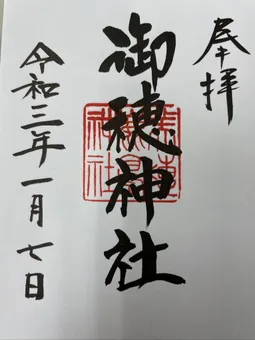 奉拝
御穂神社
令和三年一月七日